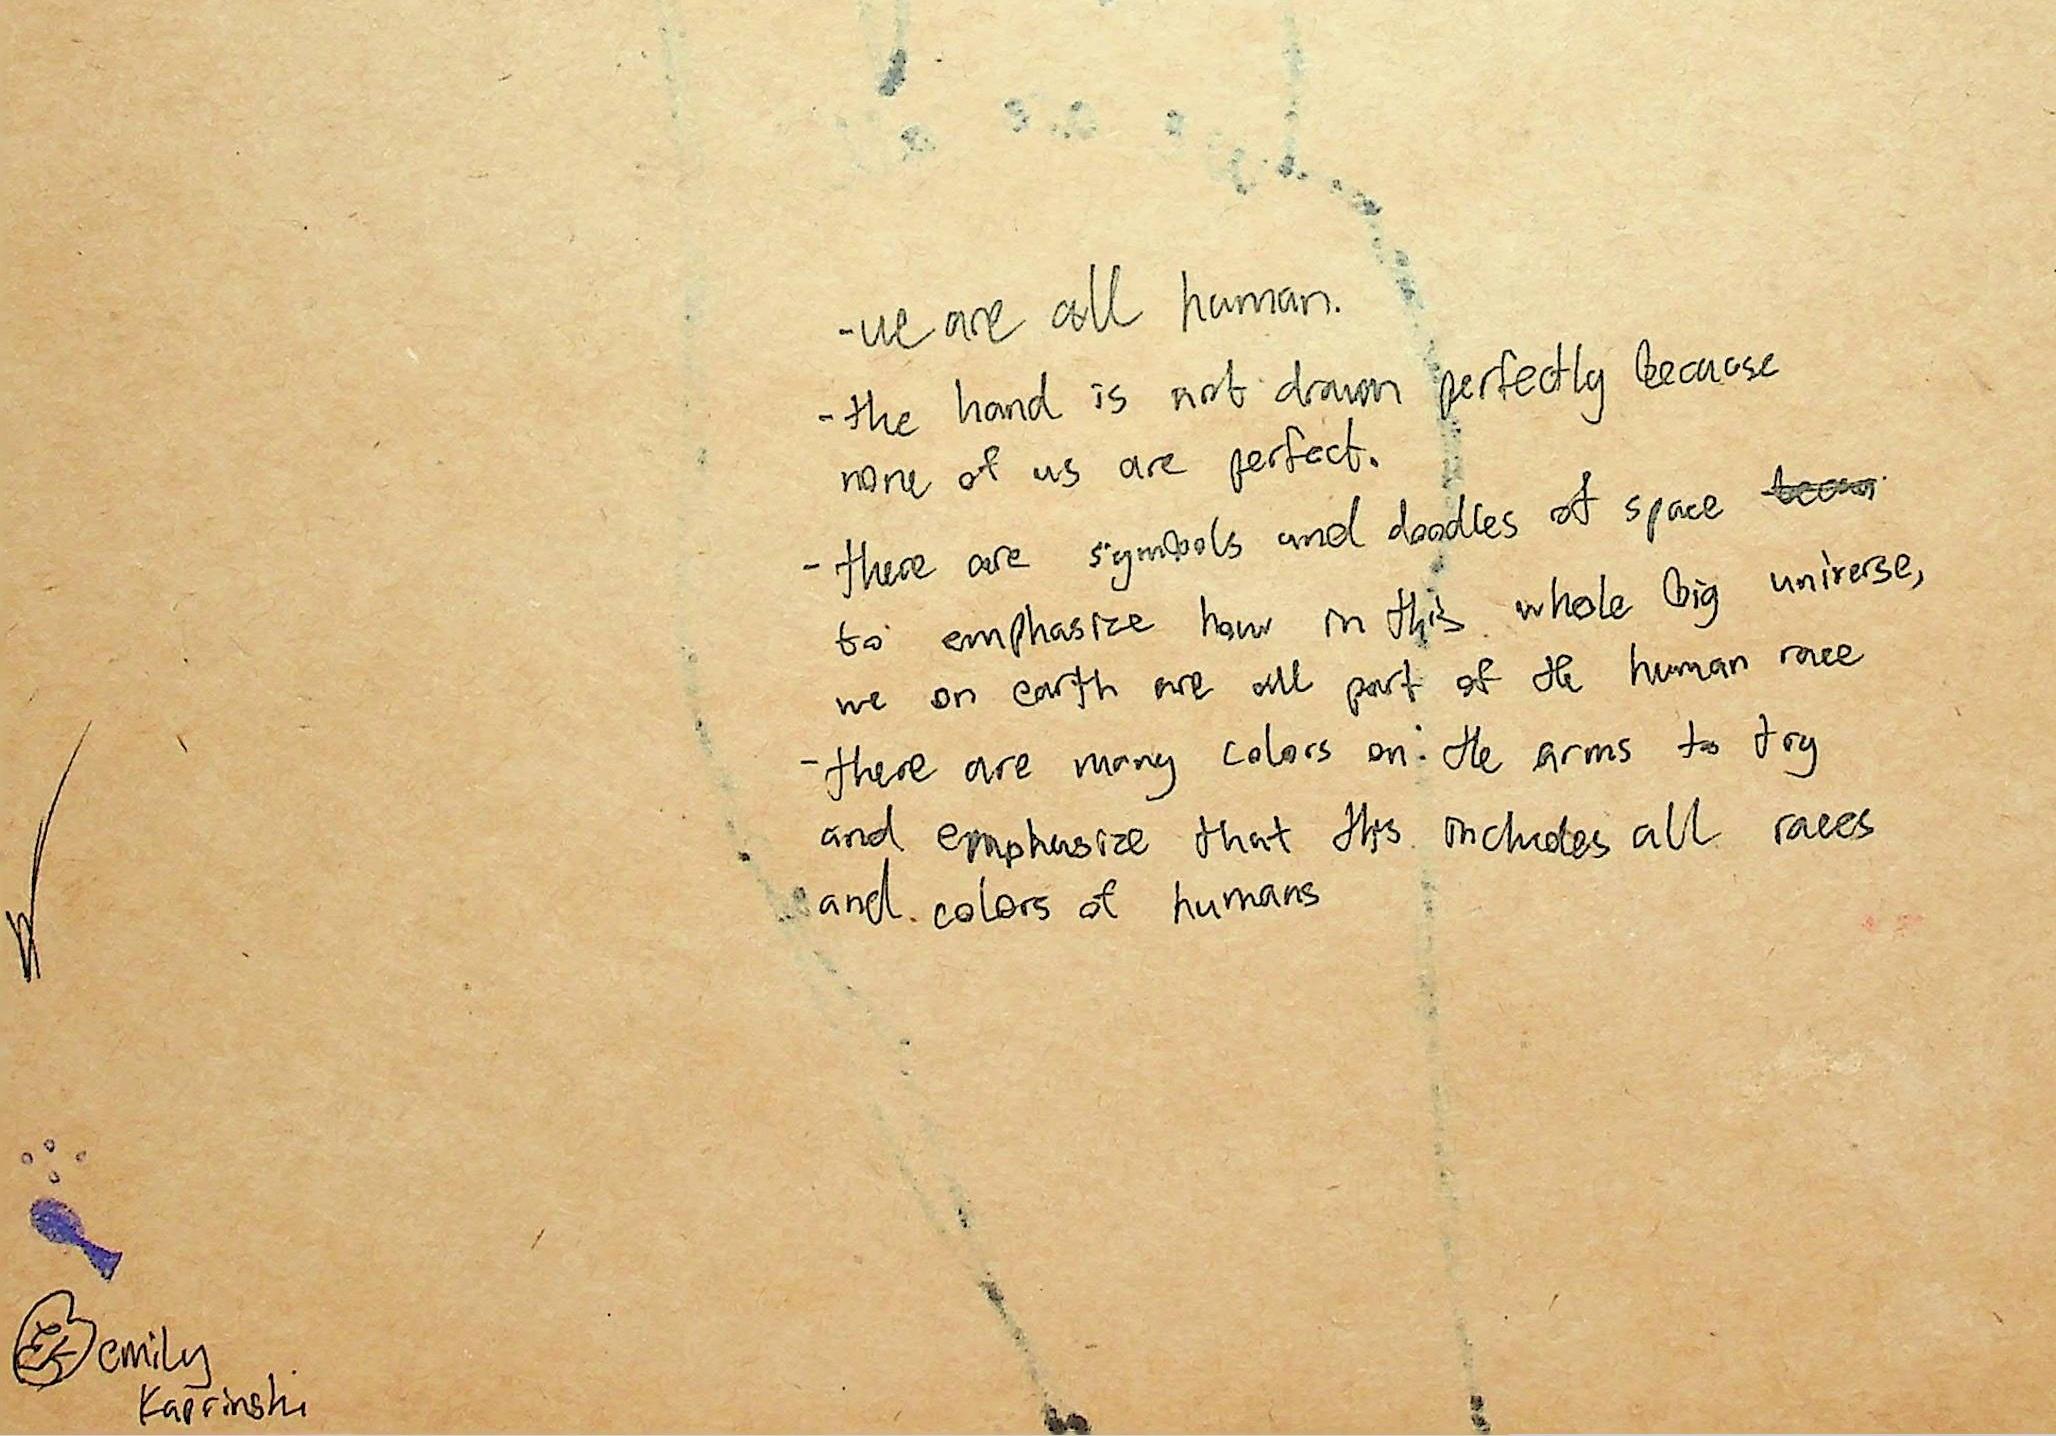 -we are all human.
-the hand is not drawn perfectly because
none of us are perfect.
-there are symbols and doodles of space
to emphasize how in this whole big universe,
we on earth are all part of the human race
-there are many colors on the arms to try
and emphasize that this includes all races
and colors of humans
emily
Kaprinski